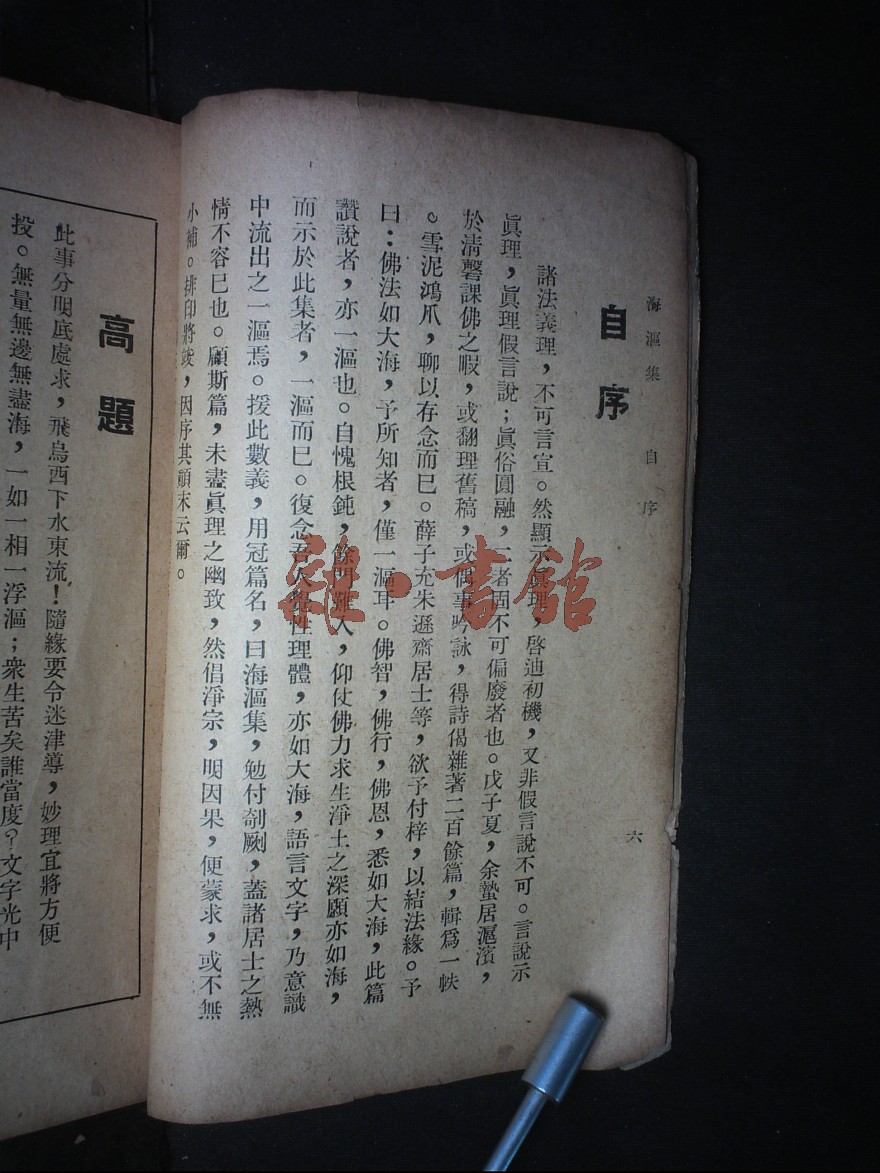 海漚集　自序　六
自序
諸法義理，不可言宣。然顯示眞理，啓迪初機，又非假言說不可。言說示
眞理，眞理假言說；眞俗圓融，二者固不可偏廢者也。戊子夏，余蟄居滬濱，
於清磬課佛之暇，或翻理舊稿，或偶事吟詠，得詩偈雜著二百餘篇，輯爲一帙
。雪泥鴻爪，聊以存念而已。薛子充朱遜齋居士等，欲予付梓，以結法緣。予
曰：佛法如大海，予所知者，僅一漚耳。佛智，佛行，佛恩，悉如大海，此篇
讚說者，亦一漚也。自愧根鈍，餘門難入，仰仗佛力求生淨土之深願亦如海，
而示於此集者，一漚而已。復念吾人覺性理體，亦如大海，語言文字，乃意識
中流出之一漚焉。援此數義，用冠篇名，曰海漚集，勉付剞劂，蓋諸居士之熱
情不容已也。顧斯篇，未盡眞理之幽致，然倡淨宗，明因果，便蒙求，或不無
小補。排印將竣，因序其顚末云爾。
高題
此事分明底處求，飛烏西下水東流！隨緣要令迷津導，妙理宜將方便
投。無量無邊無盡海，一如一相一浮漚；衆生苦矣誰當度？文字光中
雜·書館